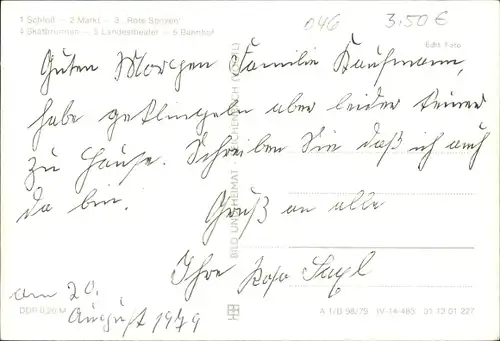 1 Schloß — 2 Markt — 3 „Rote Spitzen"
4 Skatbrunnen — 5 Landestheater — 6 Bahnhof
046
3.50 €
Edit Foto
Guten Morgen Familie Kaufmann,
habe geklingeln aber leider keiner
zu Hause. Schreiben Sie daß ich auch
da bin. Gruß an alle
Ihre Rosa
am 20.
August 1979
BILD UND HEIMAT REICHENBACH (VOGTL)
DDR 0,20 M
A 1/B 98/79 IV-14-483 01 13 01 227